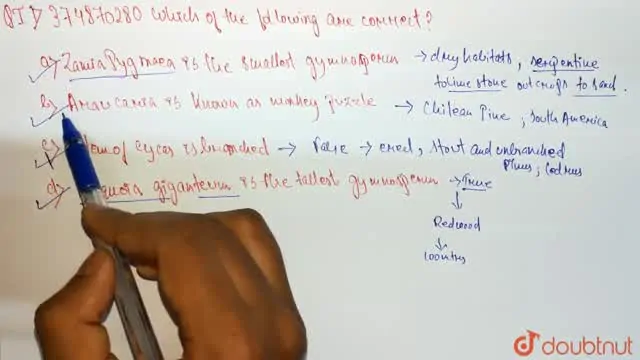 QID 374870280 Which of the following are correct?
a) Zamia Pygmaea is the smallest gymnosperm → dry habitats, serpentine
to lime stone outcrops to sand.
b) Araucaria is known as monkey puzzle → Chilean Pine, South America
c) Stem of Cycas is branched → False → erect, stout and unbranched
Pinus, Cedrus
d) giganteum is the tallest gymnosperm → True
Redwood
doubtnut